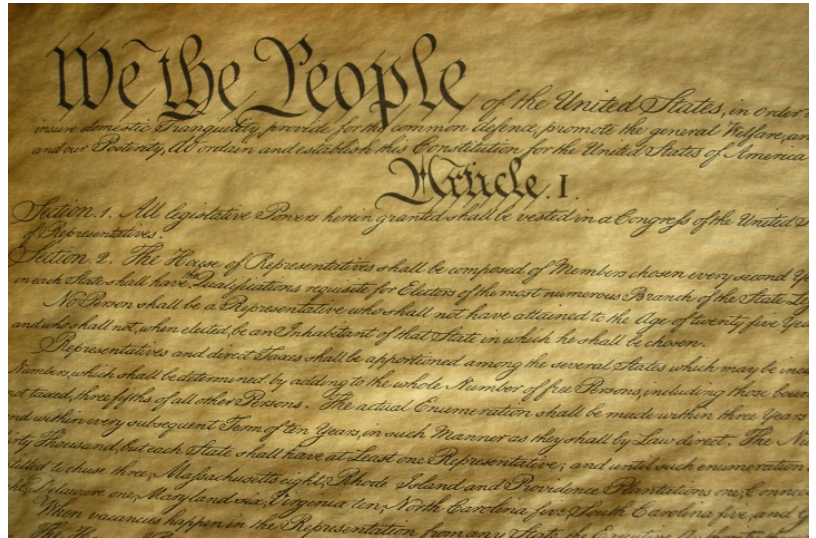 We the People of the United States, in Order
insure domestic Tranquility, provide for the common defence, promote the general Welfare, an
and our Posterity, do ordain and establish this Constitution for the United States of America
Article. I.
Section. 1. All legislative Powers herein granted shall be vested in a Congress of the United S
of Representatives.
Section. 2. The House of Representatives shall be composed of Members chosen every second Ye
in each State shall have the Qualifications requisite for Electors of the most numerous Branch of the State Leg
No Person shall be a Representative who shall not have attained to the Age of twenty five Yea
and who shall not, when elected, be an Inhabitant of that State in which he shall be chosen.
Representatives and direct Taxes shall be apportioned among the several States which may be inclu
Numbers, which shall be determined by adding to the whole Number of free Persons, including those boun
not taxed, three fifths of all other Persons. The actual Enumeration shall be made within three Years
nd within every subsequent Term of ten Years, in such Manner as they shall by Law direct. The Nu
irty Thousand, but each State shall have at Least one Representative; and until such enumeration
titled to chuse three, Massachusetts eight, Rhode Island and Providence Plantations one, Connec
ht, Delaware one, Maryland six, Virginia ten, North Carolina five, South Carolina five, and G
When vacancies happen in the Representation from any State, the Executive Authority
The